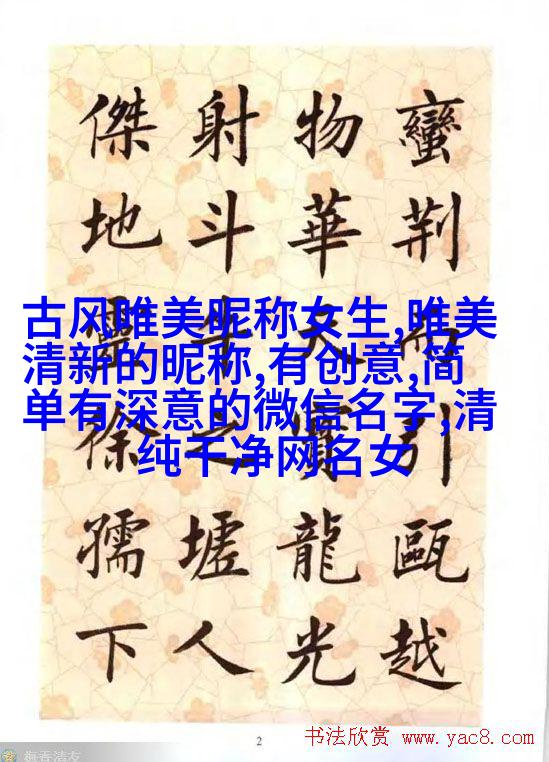 古风唯美昵称女生,唯美
清新的昵称,有创意,简
单有深意的微信名字,清
纯干净网名女
蠻荊而引甌越
物華天寶龍光
射斗牛之墟人
傑地靈徐孺下
2
书法欣赏 www.yac8.com